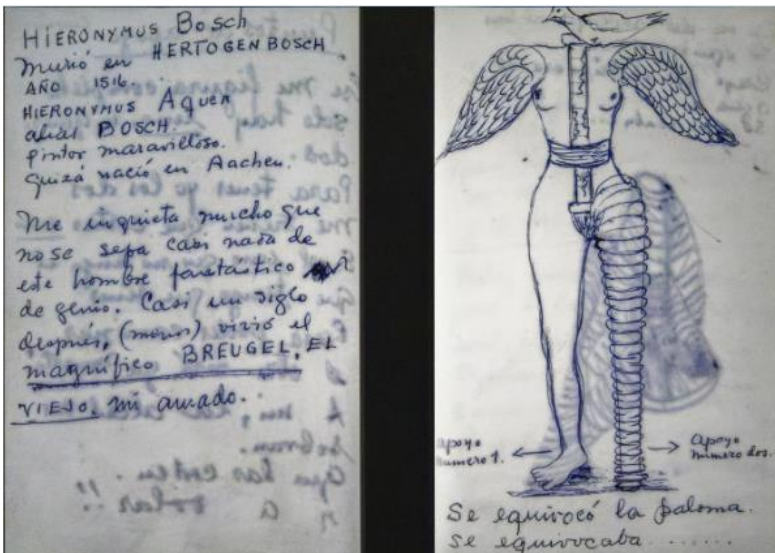 HIERONYMUS Bosch
murió en HERTOGENBOSCH
AÑO 1516.
HIERONYMUS AQUEN
alias BOSCH.
pintor maravilloso.
quizá nació en Aachen.
Me inquieta mucho que
no se sepa casi nada de
este hombre fantástico
de genio. Casi un siglo
después, (menos) vivió el
magnífico BREUGEL, EL
VIEJO, mi amado.
apoyo
numero 1.
apoyo
numero dos.
Se equivocó la paloma.
Se equivocaba.......